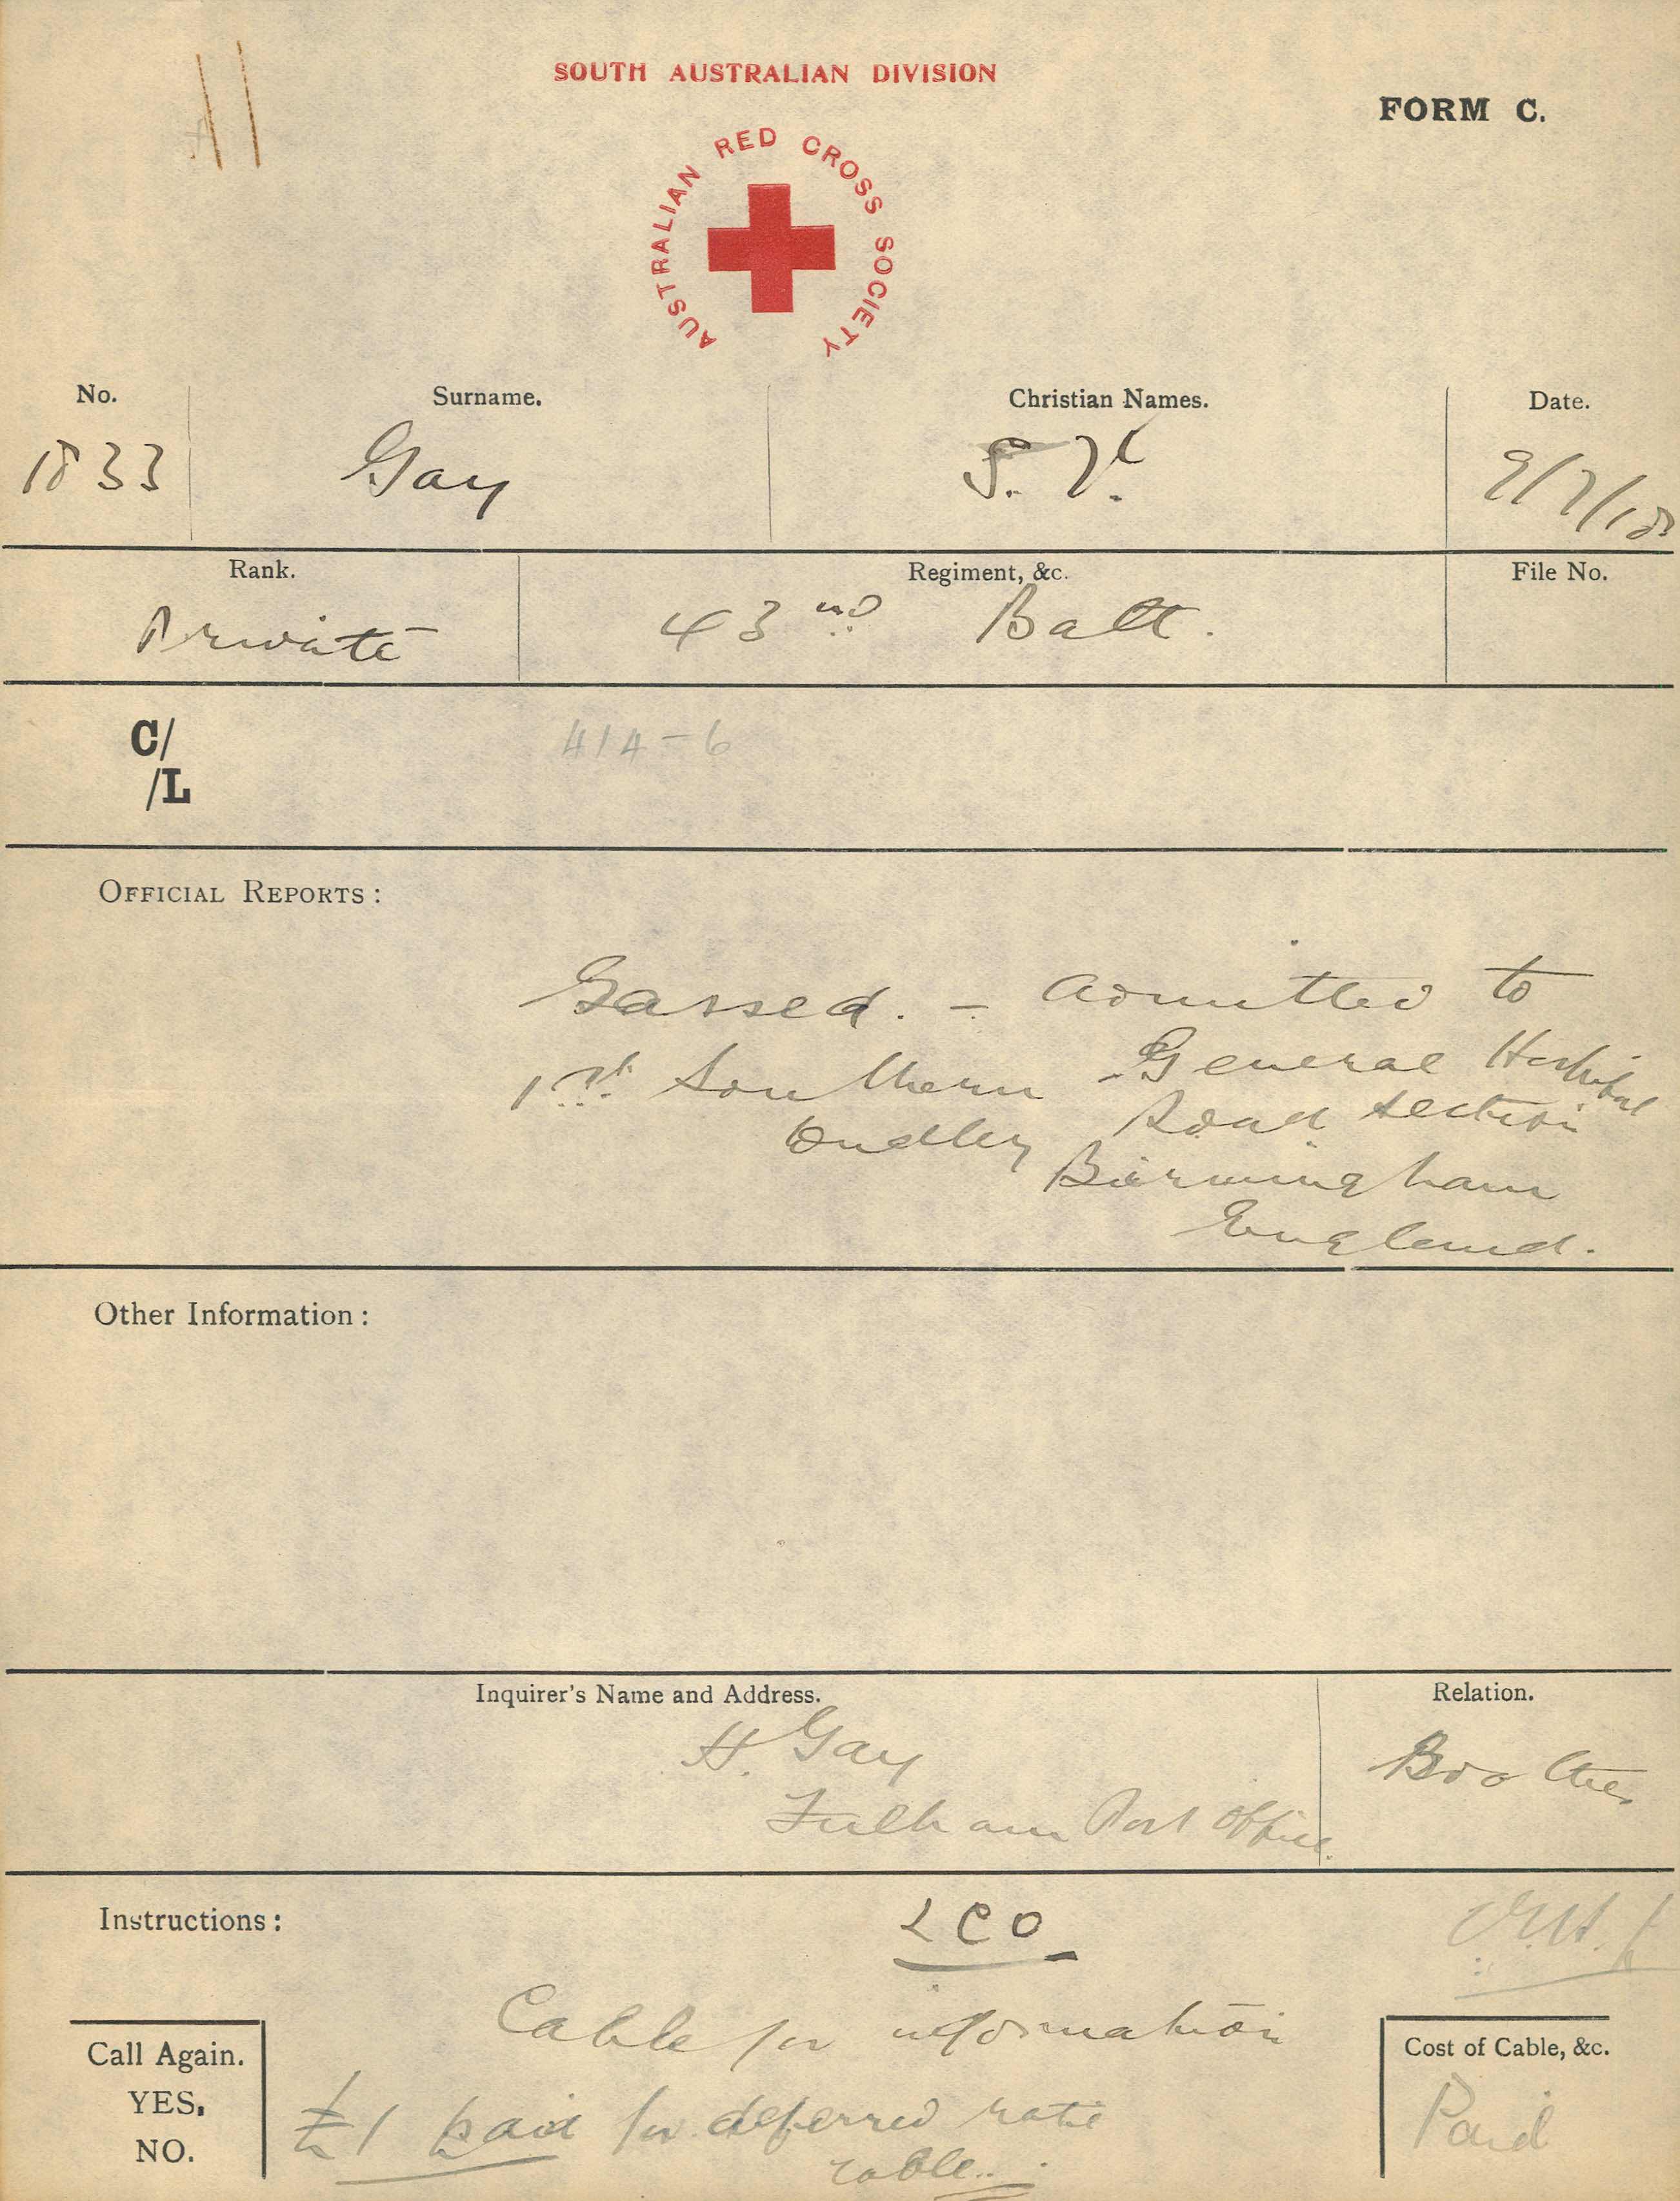 SOUTH AUSTRALIAN DIVISION
FORM C.
AUSTRALIAN RED CROSS SOCIETY
No. Surname. Christian Names. Date.
1833 Gay S. V. 9/7/18
Rank. Regiment, &c. File No.
Private 43rd Batt.
C/ 414-6
/L
OFFICIAL REPORTS:
Gassed. - admitted to
1st Southern General Hospital
Dudley Road Section
Birmingham
England.
Other Information:
Inquirer's Name and Address. Relation.
H. Gay Brother
Fulham Post Office.
Instructions: LCO
Cable for information
Call Again. Cost of Cable, &c.
YES. £1 paid for deferred rate Paid
NO. cable.